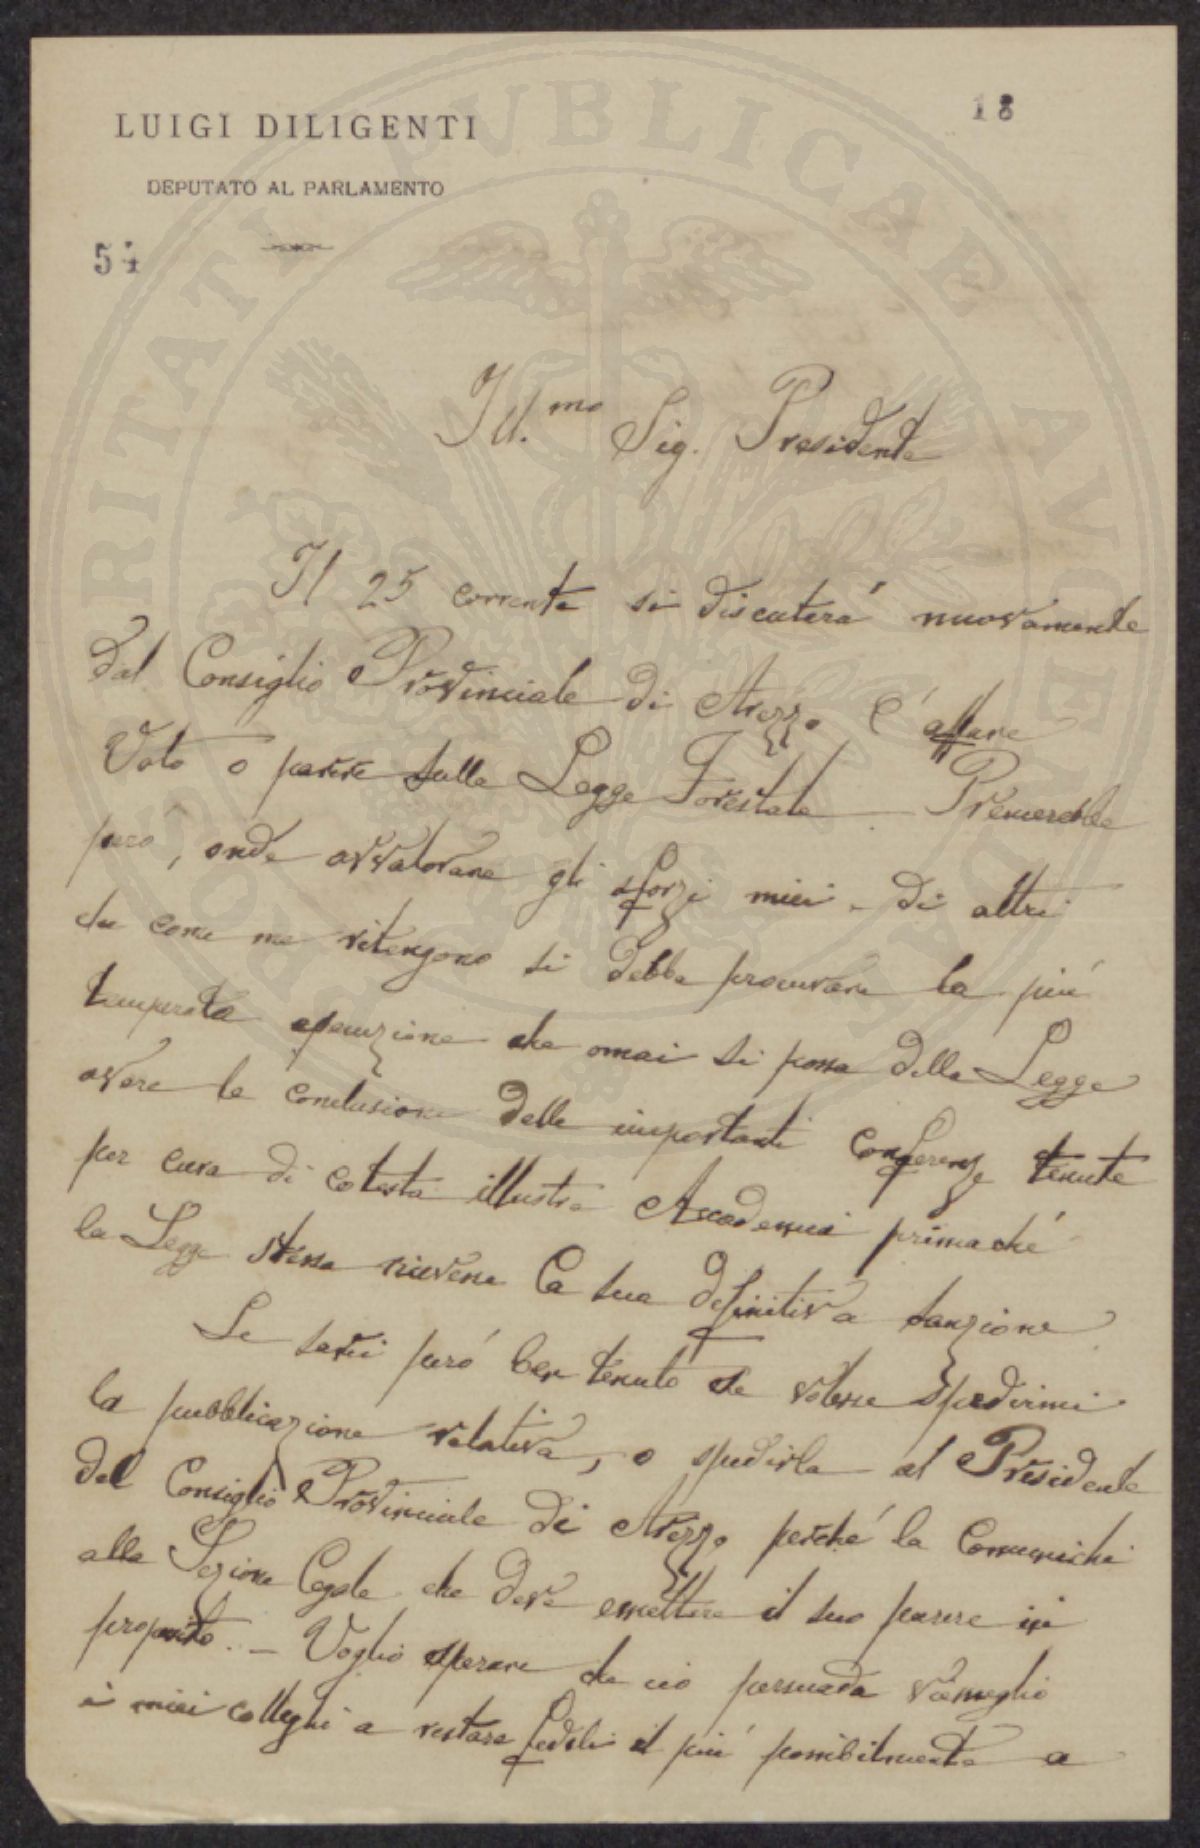 LUIGI DILIGENTI
DEPUTATO AL PARLAMENTO
18
54
Ill.mo Sig. Presidente
Il 25 corrente si discuterá nuovamente
dal Consiglio Provinciale di Arezzo l'affare
Voto o parere sulla Legge Forestale – Premerebbe
peró, onde avvalorare gli sforzi miei e di altri
che come me ritengono si debba procurare la piú
temperata esecuzione che omai si possa della Legge
avere le conclusioni delle importanti conferenze tenute
per cura di cotesta illustre Accademia primaché
la Legge stessa riceverà la sua definitiva sanzione
Le sarei peró ben tenuto se volesse spedirmi
la pubblicazione relativa, o spedirla al Presidente
del Consiglio Provinciale di Arezzo perché la comunichi
alla Sezione Legale che deve emettere il suo parere in
proposito. – Voglio sperare che ció persuada viemeglio
i miei colleghi a restare fedeli il piú possibilmente a
PUBLICAE
PROSPERITATI
AUGENDAE